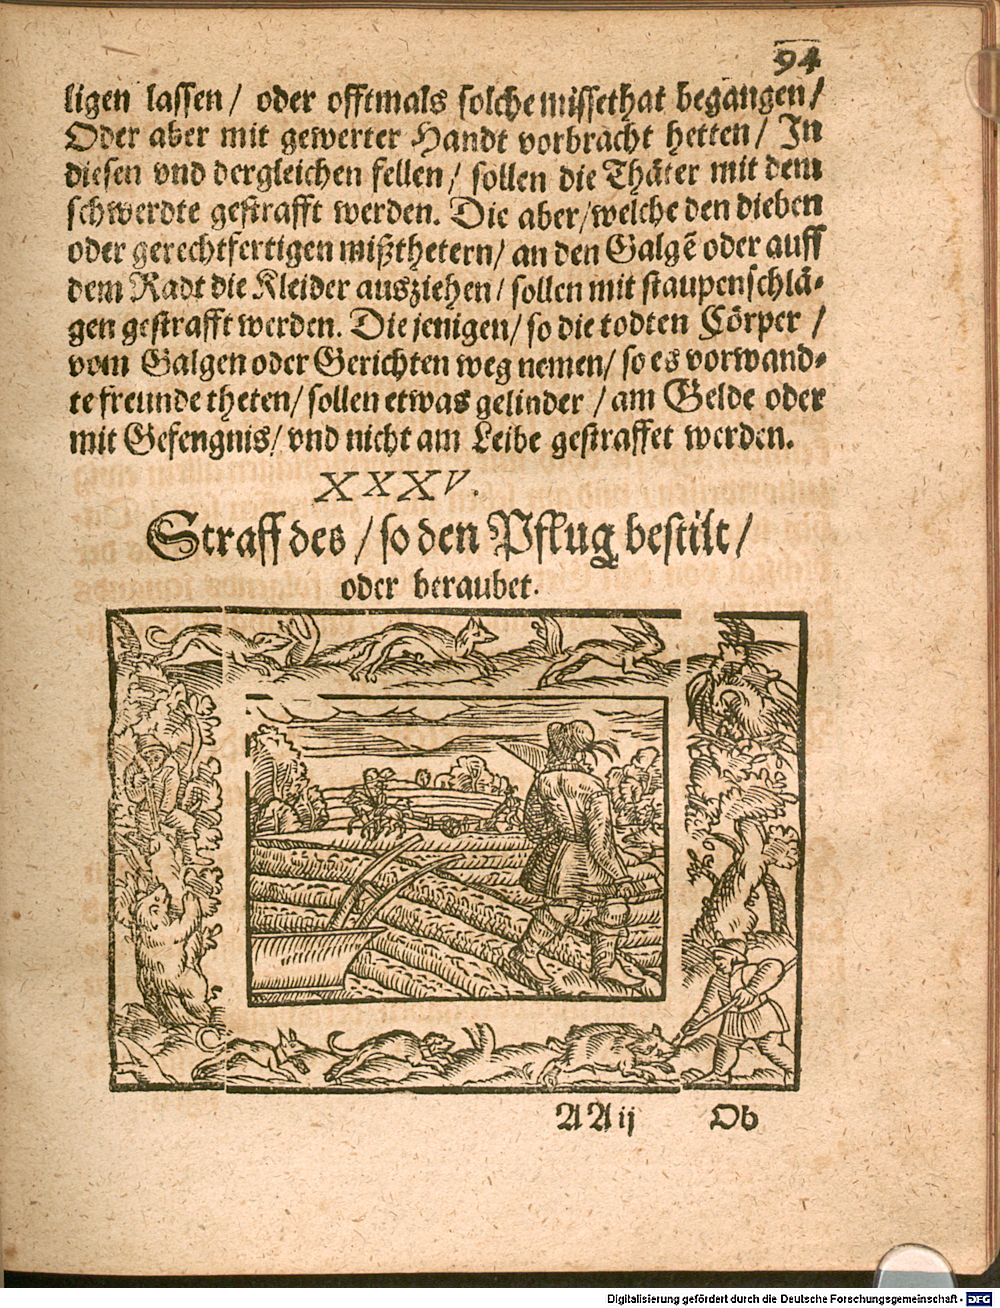 94
ligen lassen / oder offtmals solche missethat begangen /
Oder aber mit gewerter Handt vorbracht hetten / In
diesen vnd dergleichen fellen / sollen die Thäter mit dem
schwerdte gestrafft werden. Die aber / welche den dieben
oder gerechtfertigen mißthetern / an den Galgē oder auff
dem Radt die Kleider ausziehen / sollen mit staupenschlä-
gen gestrafft werden. Die jenigen / so die todten Cörper /
vom Galgen oder Gerichten weg nemen / so es vorwand-
te freunde theten / sollen etwas gelinder / am Gelde oder
mit Gefengnis / vnd nicht am Leibe gestraffet werden.
XXXV.
Straff des / so den Pflug bestilt /
oder beraubet.
AA ij Ob
Digitalisierung gefördert durch die Deutsche Forschungsgemeinschaft - DFG